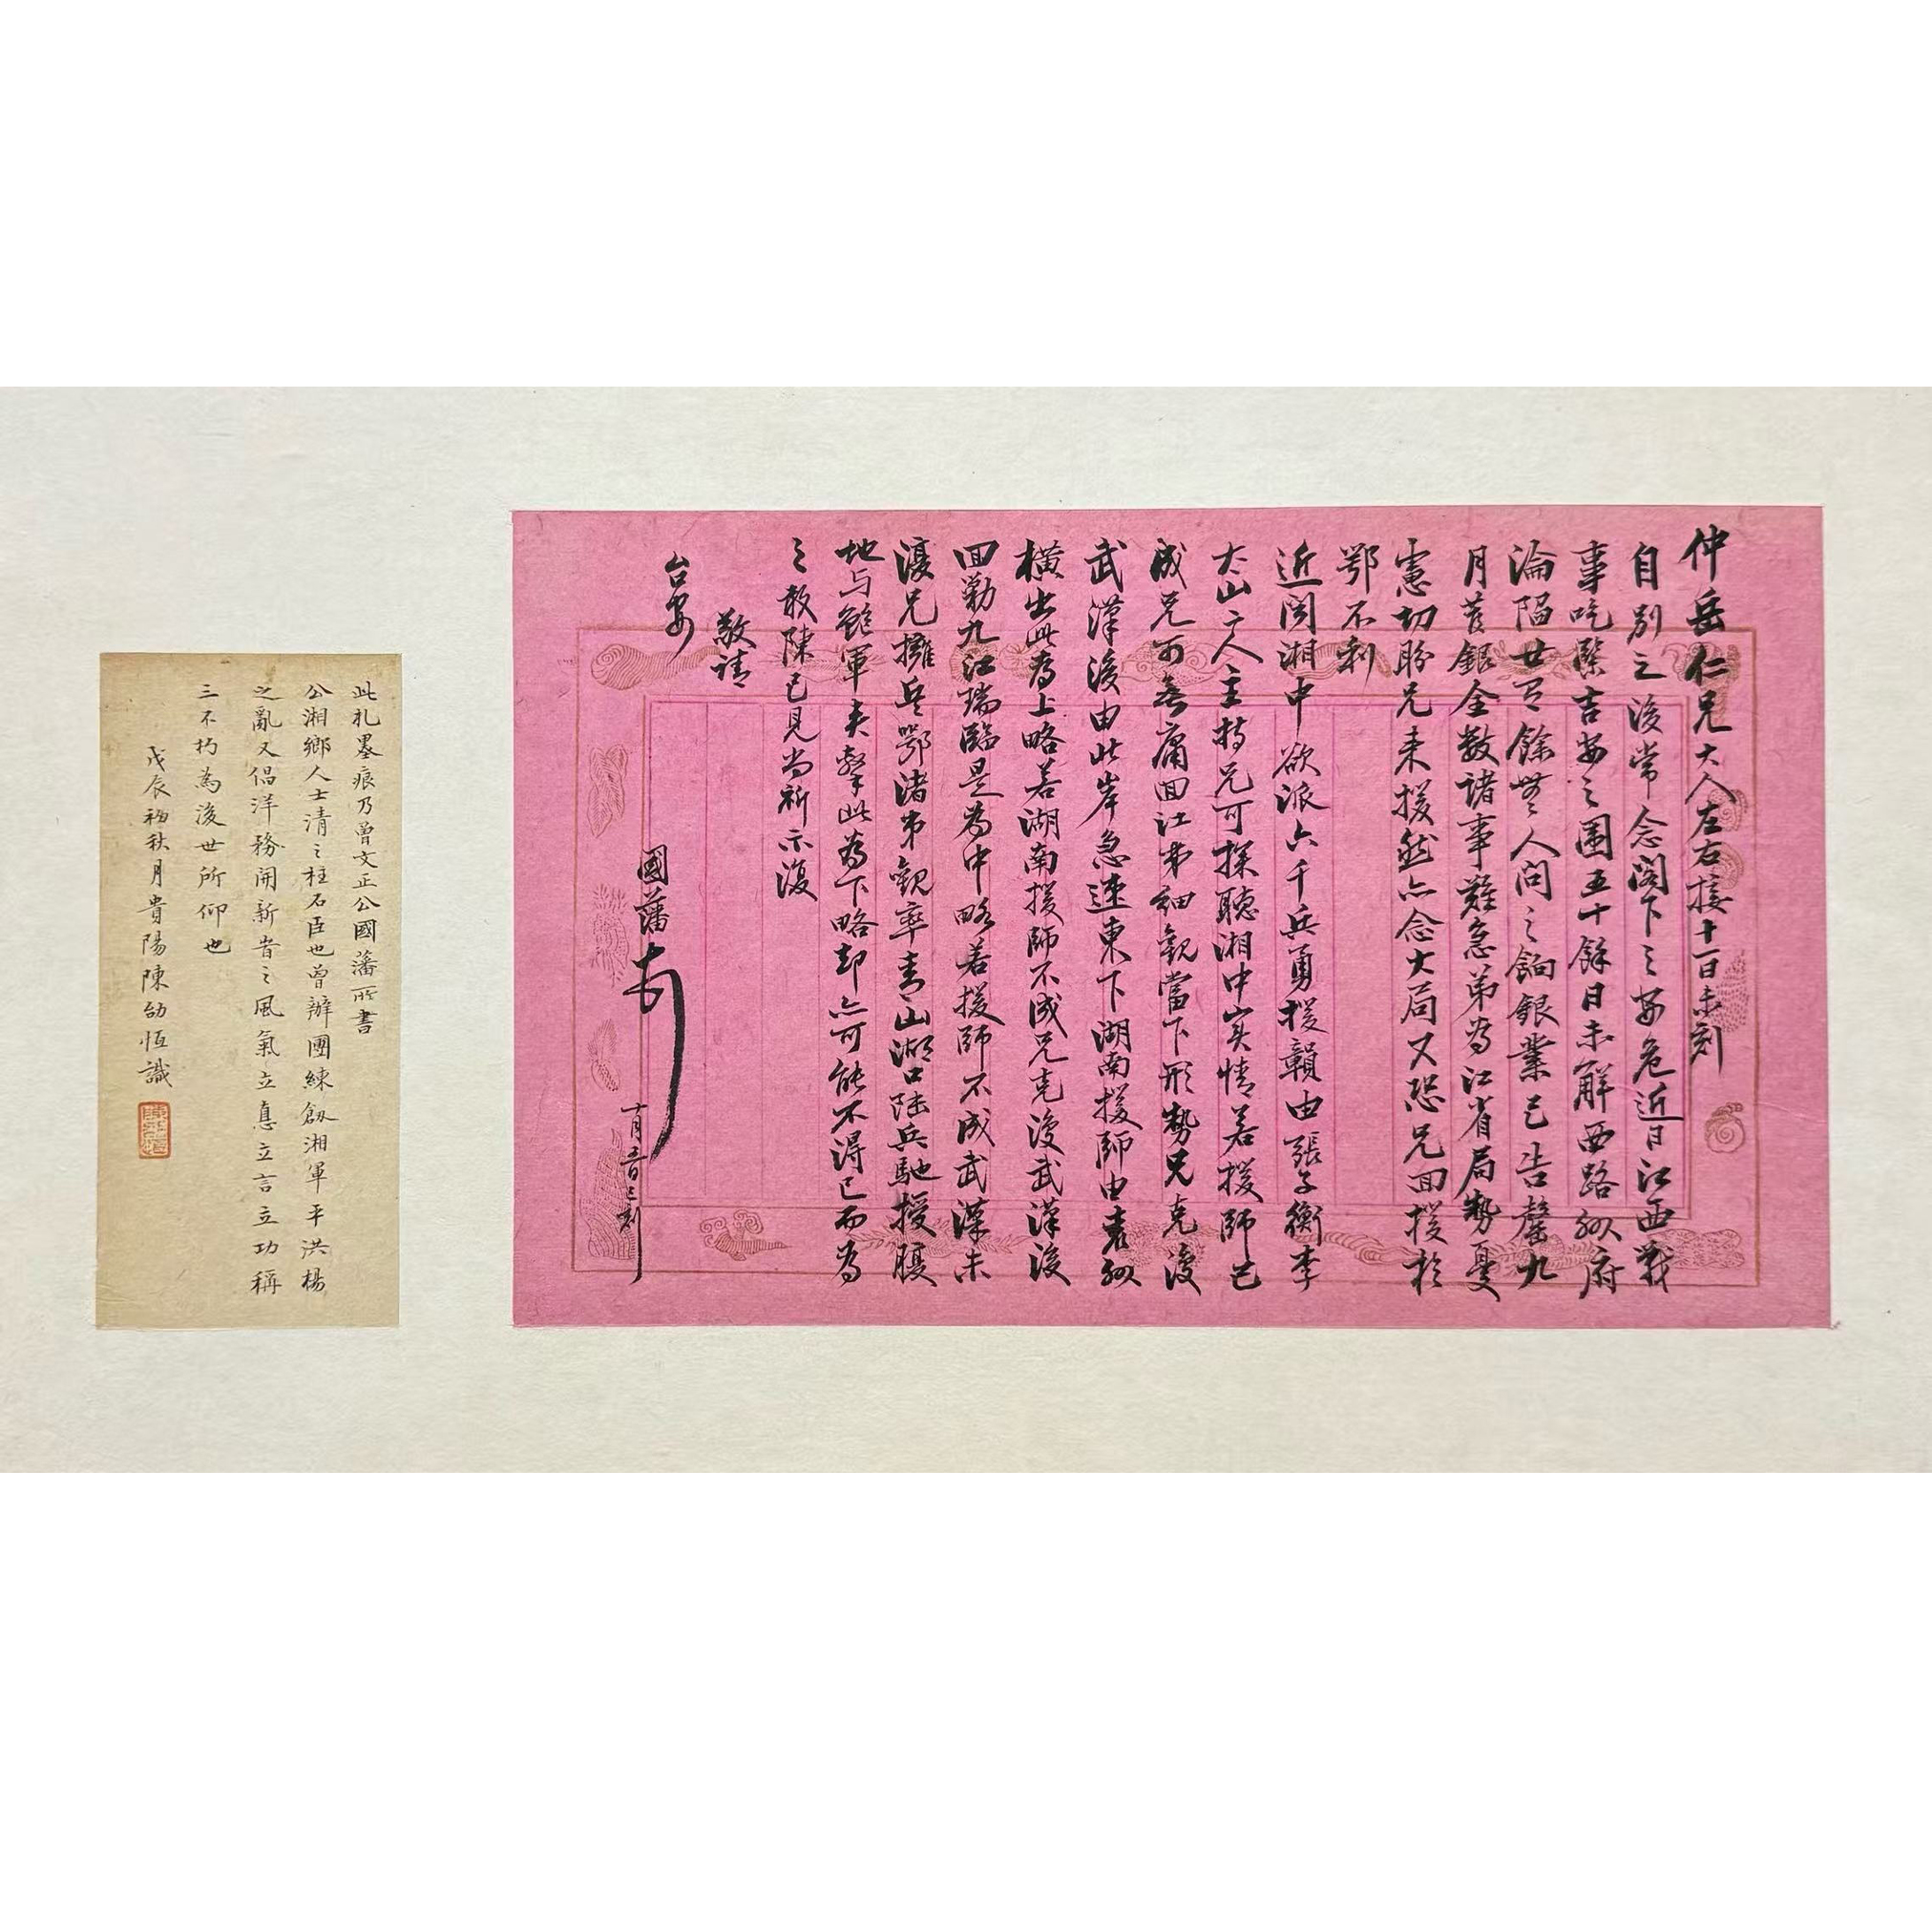 仲岳仁兄大人左右接十一日未刻
自別之後常念閣下之安危近日江西戰
事吃緊吉安之圍五十餘日未解西路 府
淪陷廿 餘 人問之餉銀業已告罄九
月 銀全數諸事難急弟為江省局勢憂
憲切盼兄来援然亦念大局又恐兄回援於
鄂不利
近聞湘中欲派六千兵勇援贛由張子衡李
大山二人主持兄可探聽湘中实情若援師已
成兄可無庸回江弟細觀當下形勢兄克復
武漢後由此岸急速東下湖南援師由袁
横出此為上略若湖南援師不成兄克復武漢後
回勦九江瑞臨是為中略若援師不成武漢未
復兄擁兵鄂渚弟親率青山湖口陸兵馳援腹
地与鮑軍夹擊此為下略却亦可能不得已而為
之敬陳己見尚祈示復
敬請
台安
國藩
此札墨痕乃曾文正公國藩所書
公湘鄉人士清之柱石臣也曾辦團練創湘軍平洪楊
之亂又倡洋務開新昔之風氣立悳立言立功稱
三不朽為後世所仰也
戊辰初秋月貴陽陳劭恆識